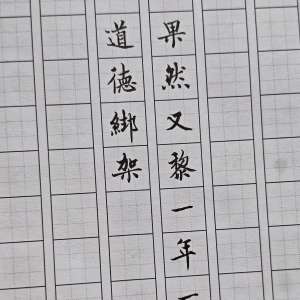 果然又黎一年一
道德綁架